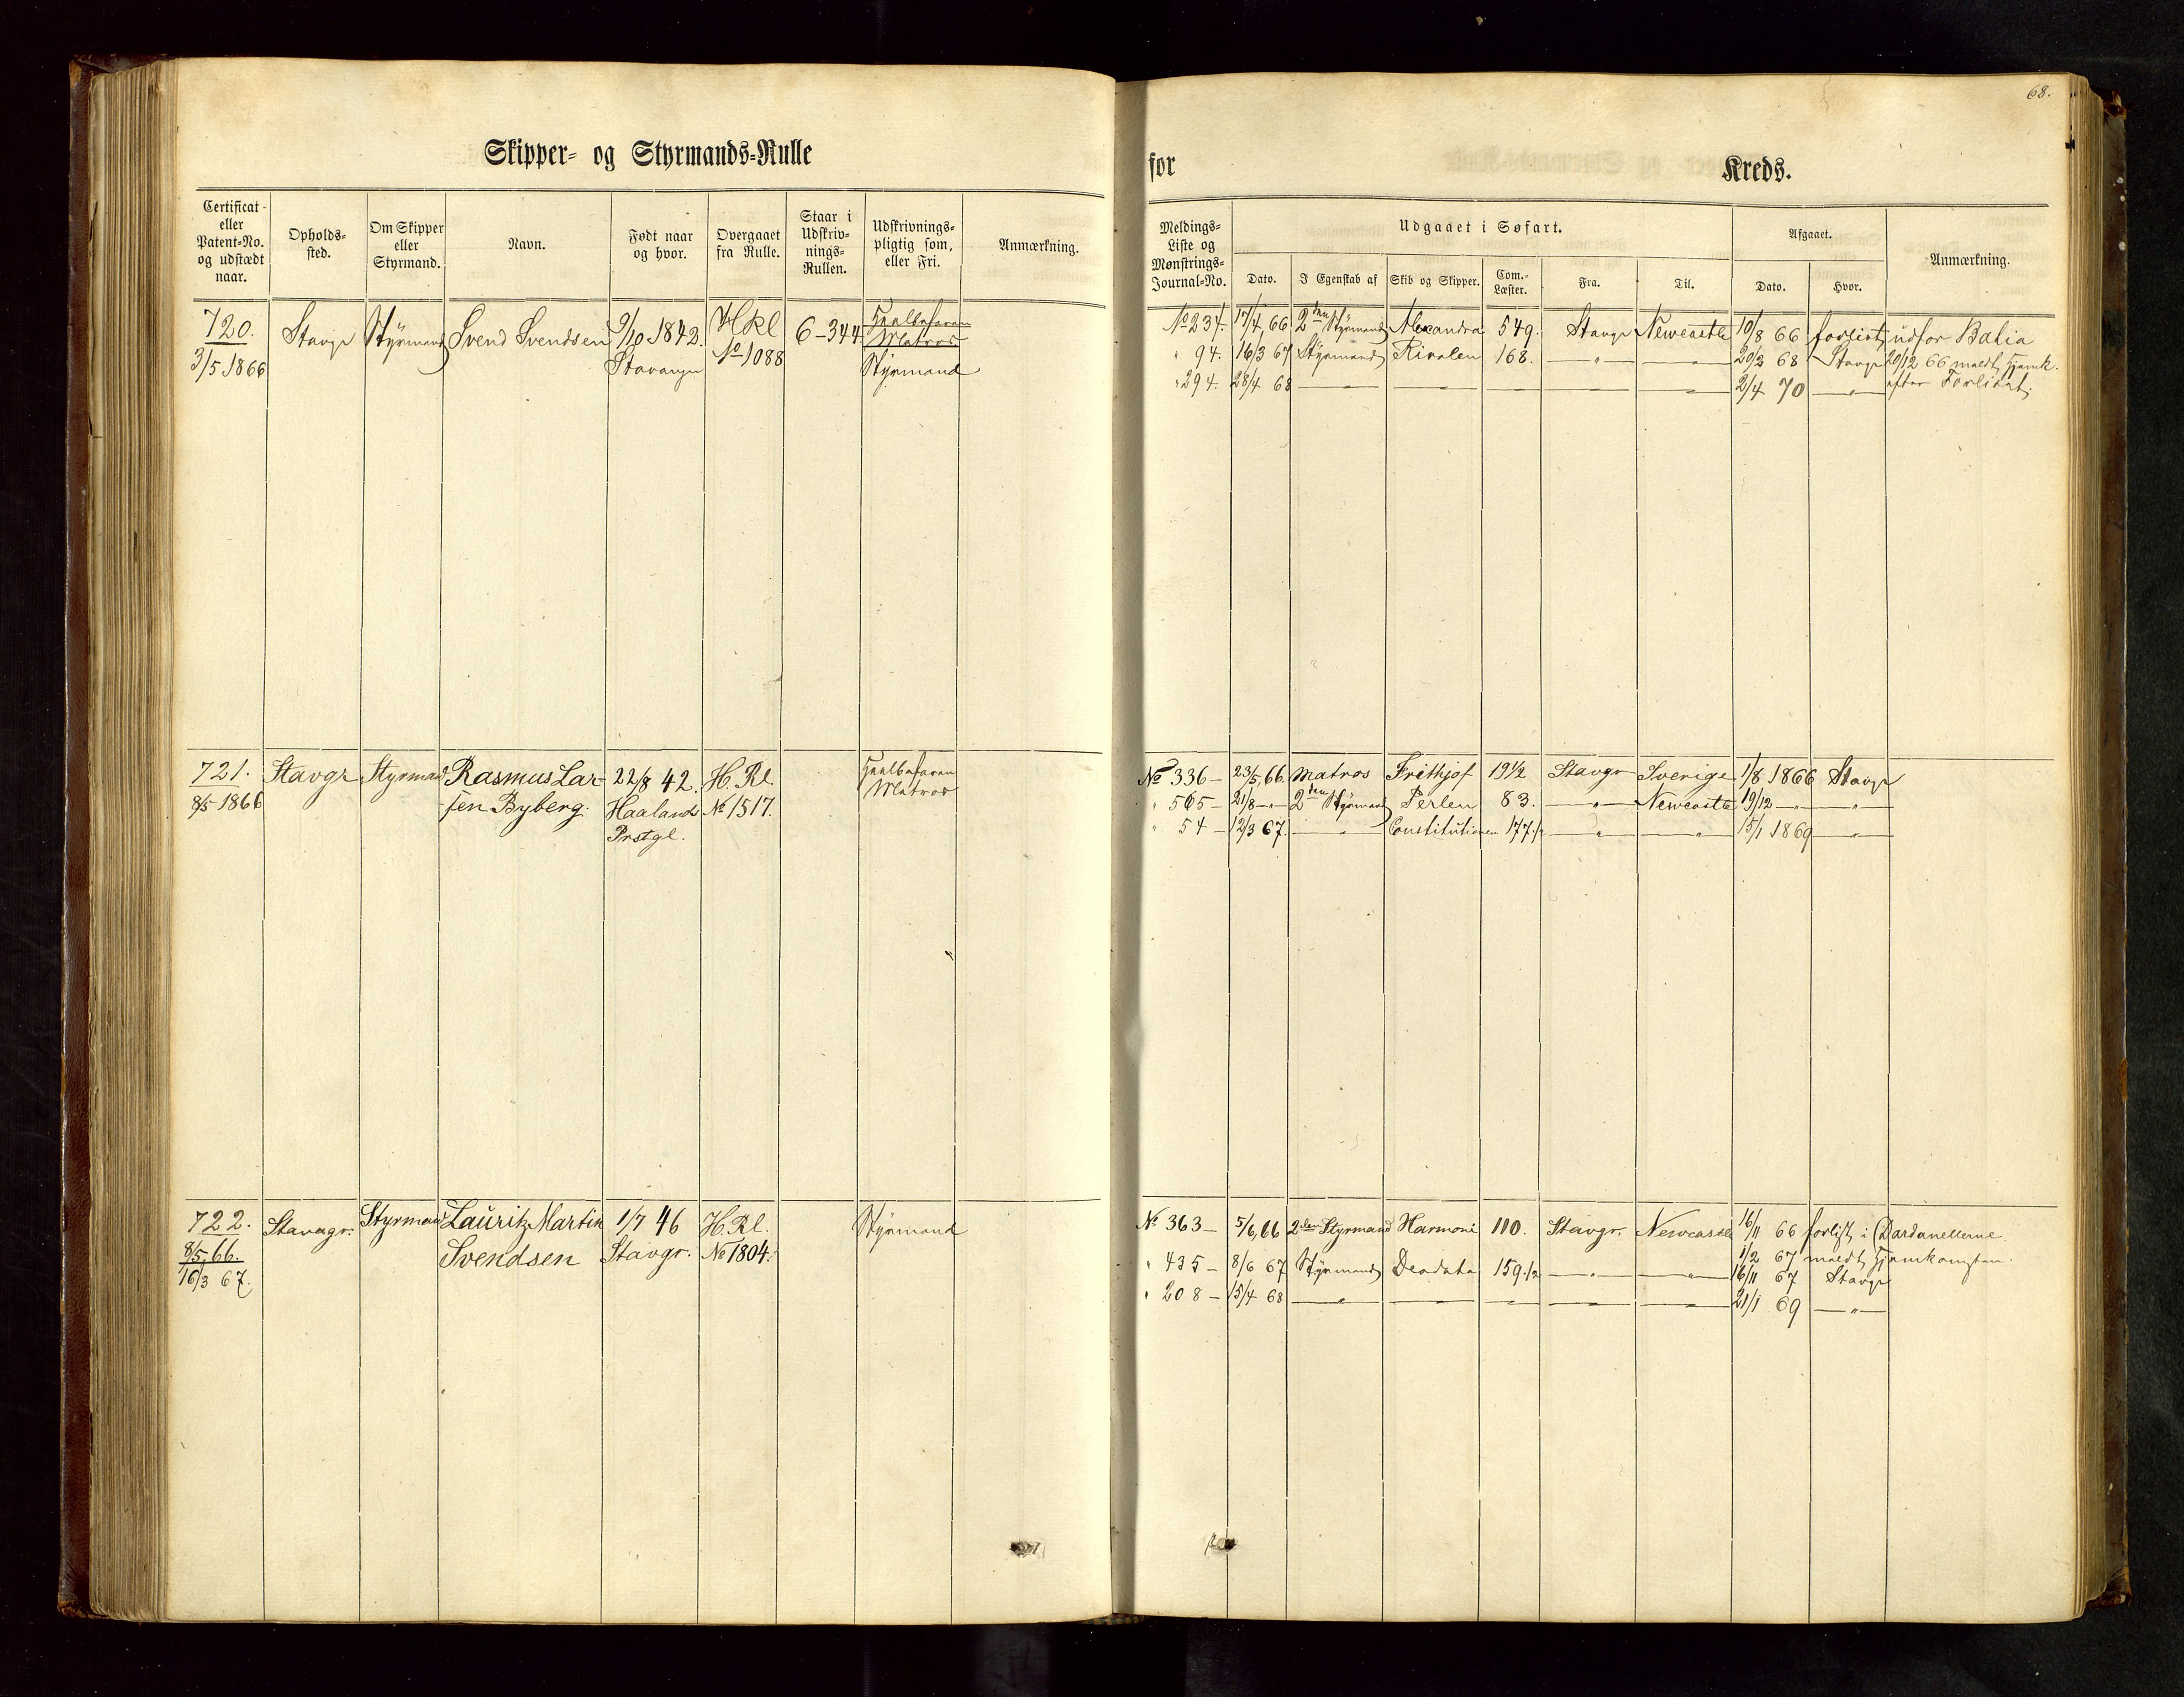 68.
Skipper- og Styrmands-Rulle for Kreds.
Certificat- eller Patent-No. og udstædt naar.
Opholds-sted.
Om Skipper eller Styrmand.
Navn.
Født naar og hvor.
Overgaaet fra Rulle.
Staar i Udskriv-nings-Rullen.
Udskrivnings-pligtig som, eller Fri.
Anmærkning.
Meldings-Liste og Mønstrings-Journal-No.
Udgaaet i Søfart.
Dato.
I Egenskab af
Skib og Skipper.
Com.-Læster.
Fra.
Til.
Afgaaet.
Dato.
Hvor.
Anmærkning.
720. Stavgr Styrmand Svend Svendsen 9/10 1842. H Rl 6-344 Heelbefaren
3/5 1866 Stavanger No 1088 Matros
Styrmand
No 234. 17/4 66 2den Styrmand Alexandra 549. Stavgr Newcastle 10/8 66 forlist udfor Batia
" 94. 16/3 67 Styrmand Rivalen 168. — " — — " — 20/2 68 Stavgr 20/12 66 meldt Hjemk.
" 294. 28/4 68 — — — — — " — 2/4 70 — " — efter Forliset.
721. Stavgr Styrmand Rasmus Lar- 22/8 42. H. Rl. Heelbefaren
8/5 1866 sen Byberg. Haalands No 1517. Matros
Prstgl.
No 336 — 23/5 66. Matros Frithjof 19 1/2 Stavgr Sverige 1/8 1866 Stavgr
" 565 — 21/8 — " — 2den Styrmand Perlen 83. — " — Newcastle 19/12 — " — — " —
" 54 — 12/3 67. — " — Constitutionen 177 1/2 — " — — " — 15/1 1869 — " —
722. Stavagr. Styrmand Lauritz Martin 1/7 46 H. Rl. Styrmand
8/5 66. Svendsen Stavgr. No 1804.
16/3 67.
No 363 — 5/6 66 2den Styrmand Harmoni 110. Stavgr. Newcastle 16/11 66 forlist i Dardanellerne.
1/2 67 meldt Hjemkomsten.
" 435 — 8/6 67 Styrmand Deodata 159 1/2 — " — — " — 16/11 67 Stavgr
" 208 — 15/4 68 — " — — " — — " — — " — — " — 21/1 69 — " —